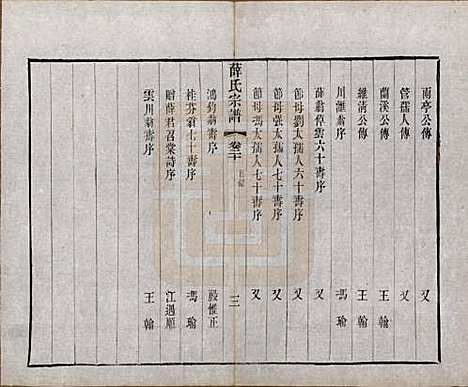 雨亭公傳 又
管孺人傳 又
蘭溪公傳 王翰
維清公傳 王翰
川涯翁序 馮瑜
薛翁偉雲六十壽序
節母劉太孺人六十壽序 又
節母張太孺人七十壽序 又
節母馮太孺人七十壽序 又
薛氏宗譜 卷二十 三
鴻鈞翁壽序 殷惟正
桂芬翁七十壽序 馮瑜
贈薛君召棠詩序 江遇順
雲川翁壽序 王翰